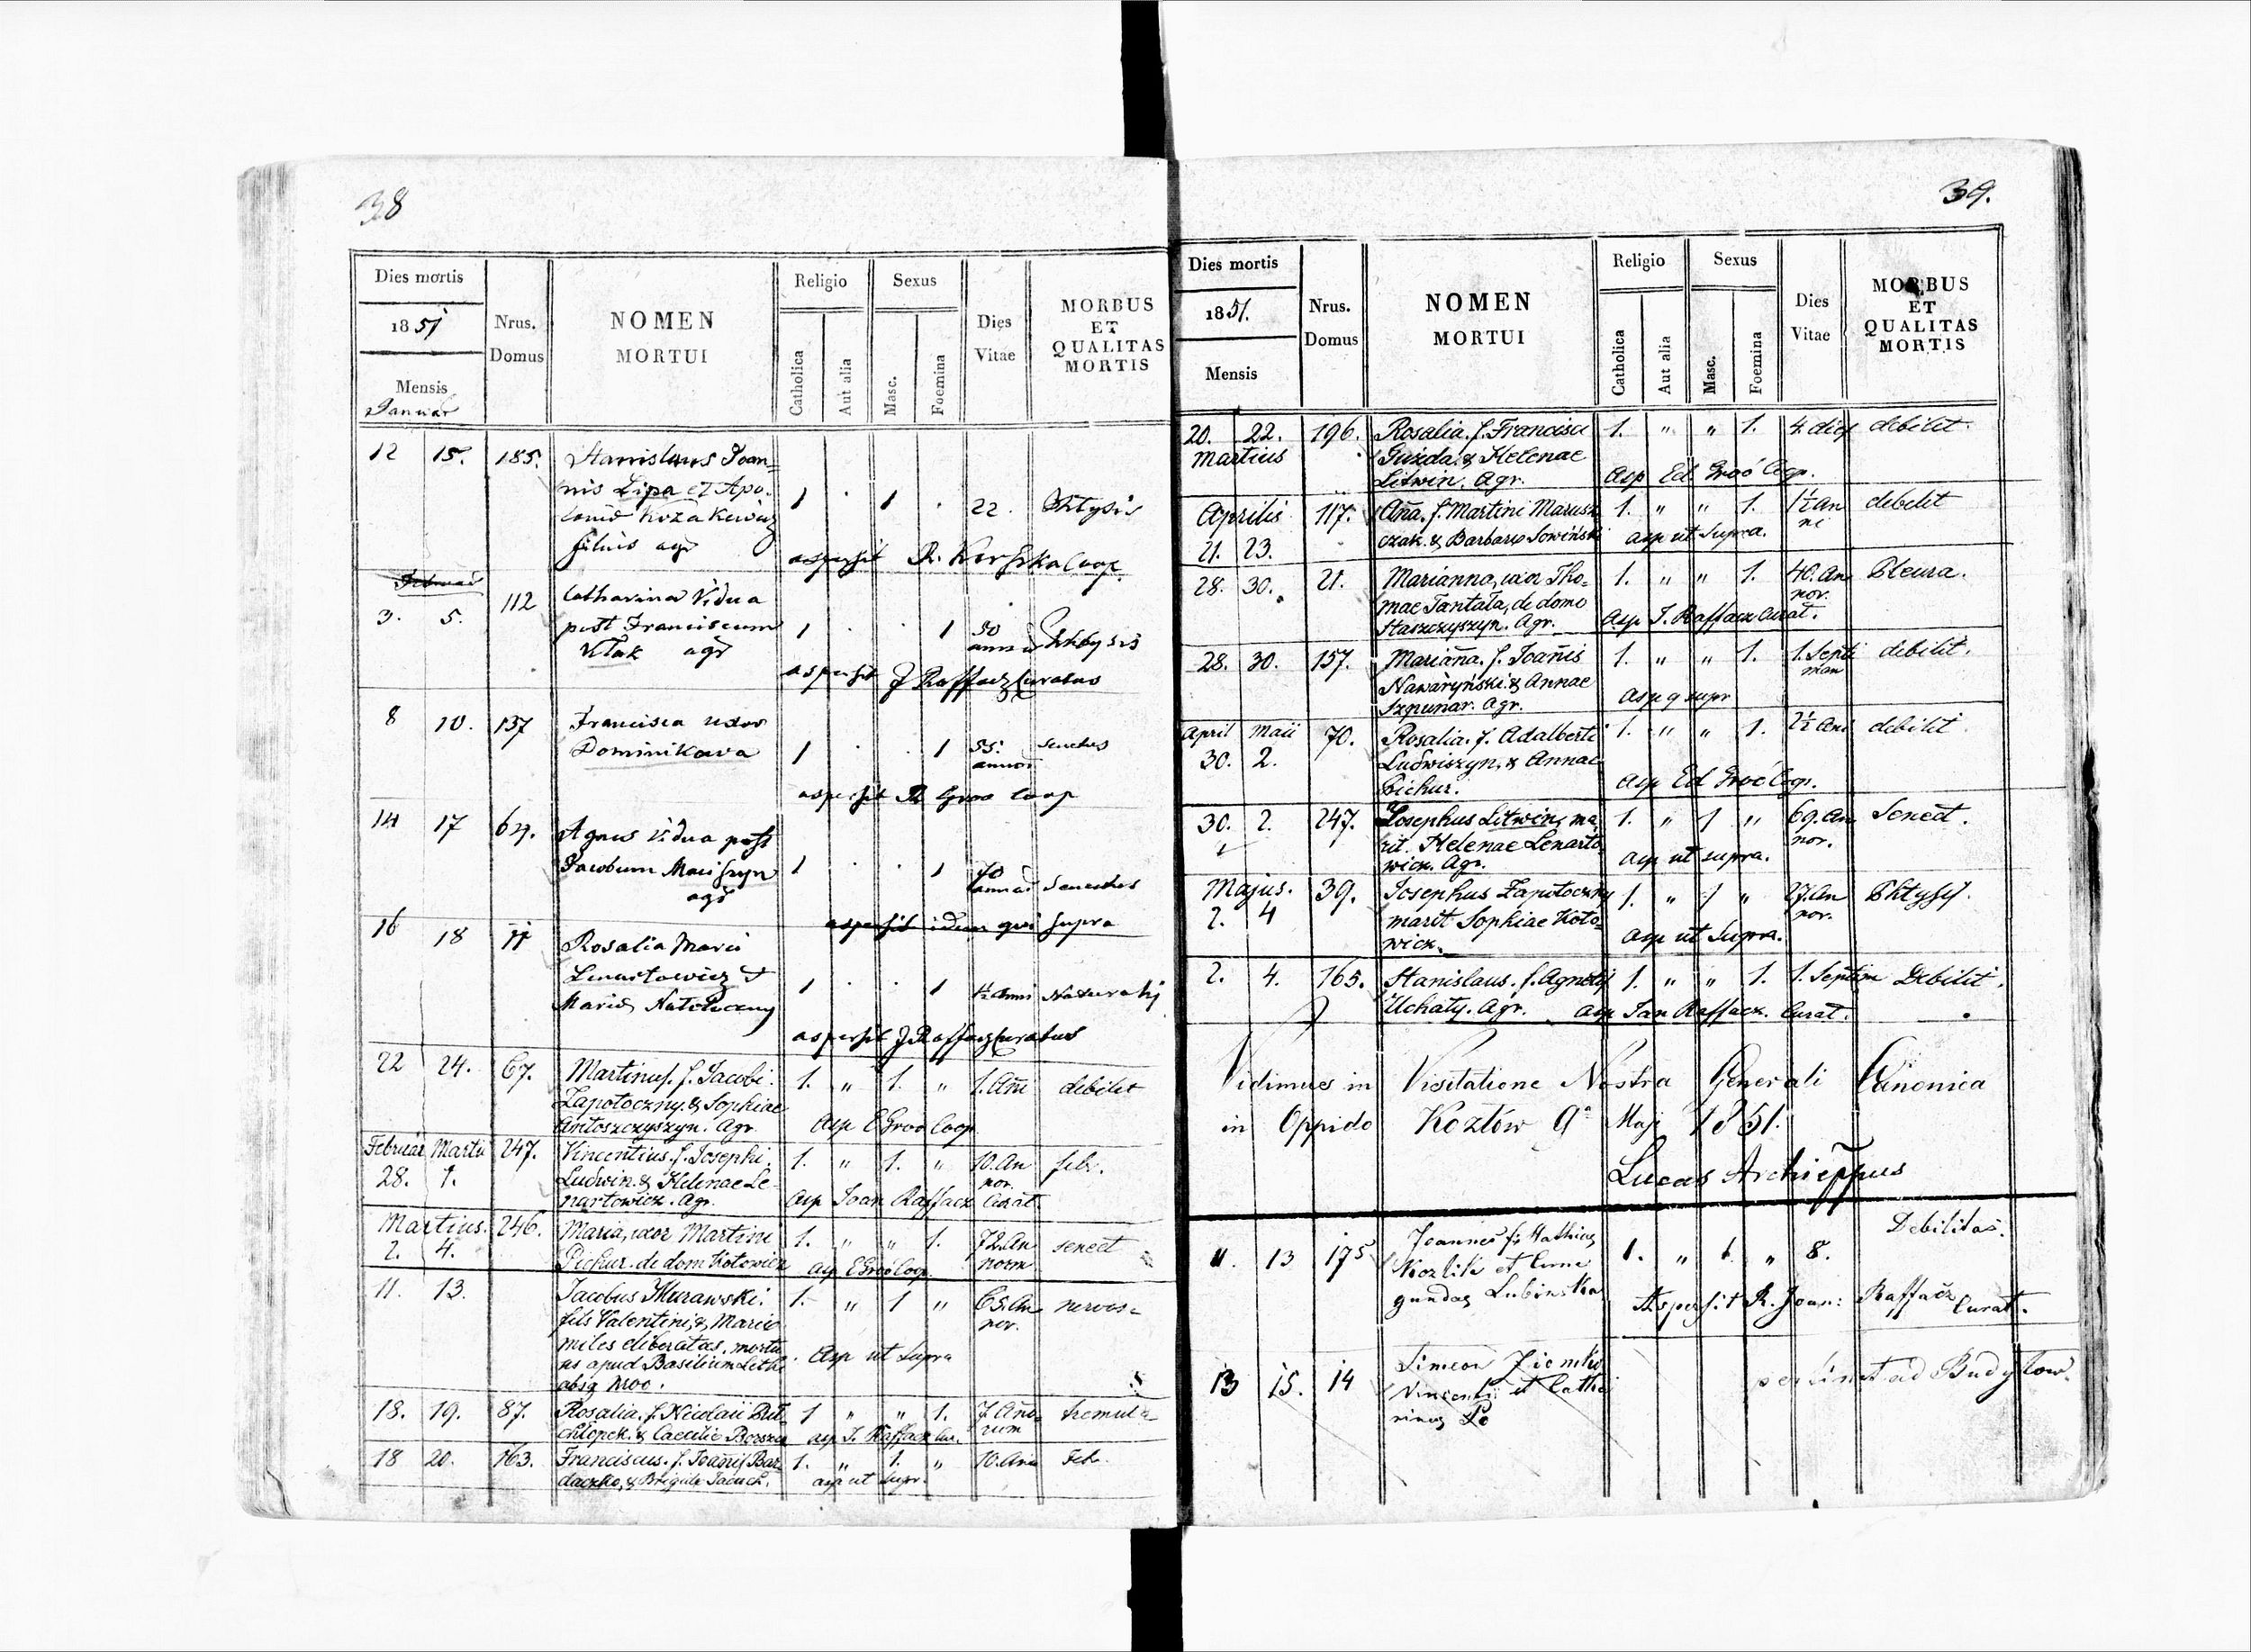 38
Dies mortis
1851
Mensis
Januar
Nrus.
Domus
NOMEN
MORTUI
Religio
Catholica
Aut alia
Sexus
Masc.
Foemina
Dies
Vitae
MORBUS
ET
QUALITAS
MORTIS
12 15. 185. Stanislaus Joan=
nis Lipa et Apo-
loniæ Kozakewicz
filius agr
1 . 1 . 22. Phtysis
aspersit R. Coop.
Februar
3. 5. 112 Catharina Vidua
post Franciscum
agr
1 . . 1 50
annor
aspersit J Raffacz Curatus
8 10. 137 Francisca uxor
Dominikowa
1 . . 1 55.
annor
aspersit R Groo Coop
14 17 64. Agnes vidua post
Jacobum
agr
1 . . 1 70
annor Senectus
aspersit idem qui supra
16 18 Rosalia
Lenartowicz &
Mariæ
1 . . 1 ½ Anni
aspersit J Raffacz Curatus
22 24. 67. Martinus. f. Jacobi.
Zapotoczny. & Sophiae
Antoszczyszyn. Agr
1. " 1. " 1. Añi debilit
Asp E Groo Coop
Februar Martii
28. 1.
247. Vincentius. f. Josephi.
Ludwin. & Helenae Le-
nartowicz. Agr.
1. " 1. " 10. An
nor. febr.
Asp Joan Raffacz Curat
Martius.
2. 4.
246. Maria, uxor Martini
Pichur. de dom Kotowicz
1. " " 1. 72. An
norm senect
asp E Groó Coop
11. 13. Jacobus Murawski.
fils Valentini, & Mariæ
miles eliberatus, mortu
us apud Basilium
absq Nroo.
1. " 1 " 65. An
nor. nervos=
Asp ut supra
18. 19. 87. Rosalia. f. Nicolaii
chłopek. & Caeciliæ
1 " " 1. 7. Año-
rum tremula
asp J. Raffacz Cur.
18 20. 163. Franciscus. f. Joañis Bar
daczko, & Brigitæ
1. " 1. " 10. Ann Feb.
asp ut supr.
39.
Dies mortis
1851.
Mensis
Nrus.
Domus
NOMEN
MORTUI
Religio
Catholica
Aut alia
Sexus
Masc.
Foemina
Dies
Vitae
MORBUS
ET
QUALITAS
MORTIS
20. 22.
Martius
196. Rosalia. f. Francisci
Guzda. & Helenae
Litwin. Agr.
1. " " 1. 4. dies debilit.
Asp Ed Groó Cop.
Aprilis
21. 23.
117. Aña. f. Martini Marusz
czak. & Barbaræ Sowiński
1. " " 1. 1½ An
ni debilit
asp ut Supra.
28. 30. 21. Marianna, uxor Tho-
mae Tantała, de domo
Staszczyszyn. Agr.
1. " " 1. 40. An
nor. Pleura.
Asp J. Raffacz Curat.
28. 30. 157. Mariañna. f. Joañis
Nawaryński. & Annae
Szpunar. Agr.
1. " " 1. 1. Septi
man debilit.
Asp q supr
April Maii
30. 2.
70. Rosalia. f. Adalberti
Ludwiszyn, & Annae
Pichur.
1. " " 1. 2½ Ani debilit
Asp Ed Groó Cop.
30. 2. 247. Josephus Litwin, ma
rit. Helenae Lenarto-
wicz. Agr.
1. " 1 " 69. An
nor. Senect.
Asp ut supra.
Majus.
2. 4
39. Josephus Zapotoczny
marit Sophiae Koto-
wicz.
1. " 1 " 27. An
nor. Phtysis.
Asp ut Supra.
2. 4. 165. Stanislaus. f. Agnetis
Uchaty. Agr.
1. " " 1. 1. Septim Debilit.
Asp Jan Raffacz. Curat.
Vidimus in Visitatione Nostra Generali Canonica
in Oppido Kozłów 9ª Maji 1851.
Lucas Archieppus
11. 13 175 Joannes f. Mathiæ
Kozlik et Cune
gundæ Lubinska
1. " 1. " 8. Debilitas.
Aspersit R. Joan: Raffacz
Curat.
13 15. 14 Simeon Ziomko
Vincentii et Catha
rinæ
pertinet ad Budyłow.